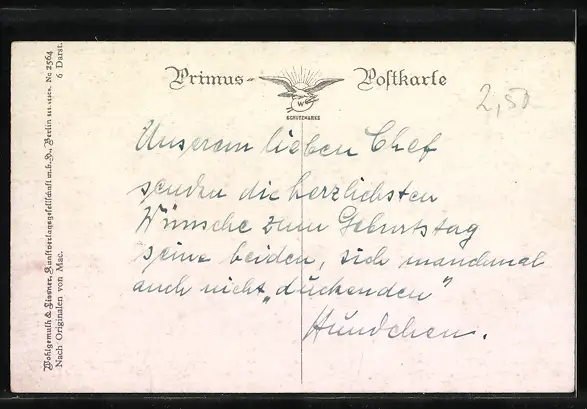 Primus- Postkarte
W
SCHUTZMARKE
2,50
Unserem lieben Chef
senden die herzlichsten
Wünsche zum Geburtstag
seine beiden, sich manchmal
auch nicht „duckenden"
Hündchen.
Wohlgemuth & Lissner, Kunstverlagsgesellschaft m.b.H., Berlin No 2564
Nach Originalen von Mac. 6 Darst.